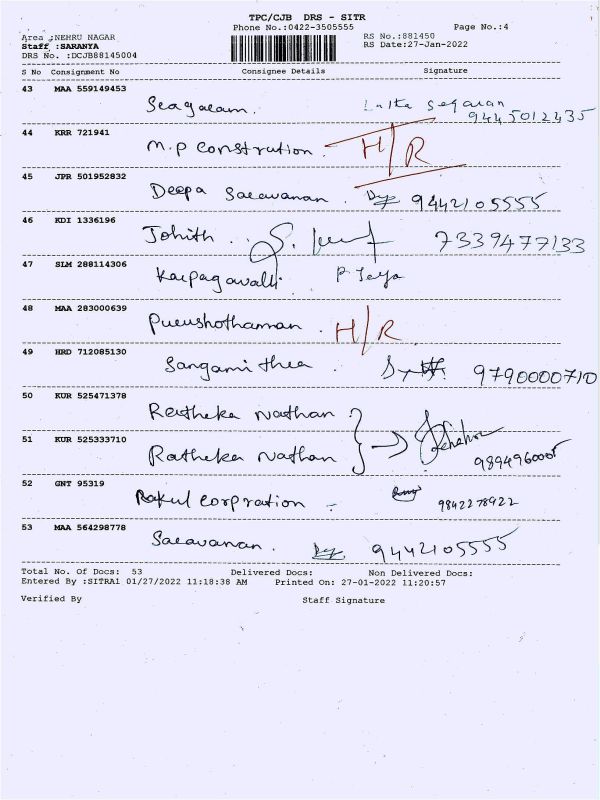 TPC/CJB DRS - SITR
Phone No.:0422-3505555 Page No.:4
Area :NEHRU NAGAR RS No.:881450
Staff :SARANYA RS Date:27-Jan-2022
DRS No. :DCJB88145004
S No Consignment No Consignee Details Signature
43 MAA 559149453
Seagaeam. Lalta segaran
9445012435
44 KRR 721941
M.P constrution. H/R
45 JPR 501952832
Deepa Saravanan. 9442105555
46 KDI 1336196
Johith. 7339477133
47 SLM 288114306
Karpagavalli P Jeya
48 MAA 283000639
Purushothaman. H/R
49 HRD 712085130
Sangamithra. 9790000710
50 KUR 525471378
Ratheka Nathan
51 KUR 525333710
Ratheka Nathan 9894960005
52 GNT 95319
Rakul corpration 9842278922
53 MAA 564298778
Saravanan. 9442105555
Total No. Of Docs: 53 Delivered Docs: Non Delivered Docs:
Entered By :SITRA1 01/27/2022 11:18:38 AM Printed On: 27-01-2022 11:20:57
Verified By Staff Signature